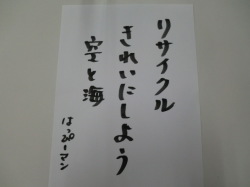 リサイクル
きれいにしよう
空と海
はっぴーマン